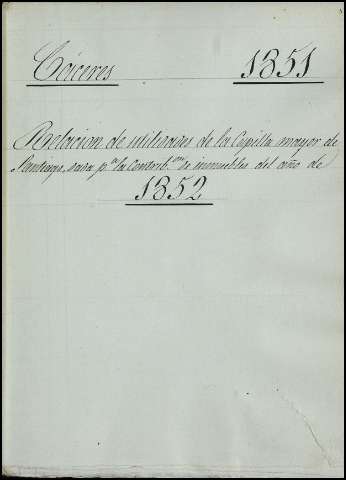 Cáceres 1851
Relacion de utilidades de la Capilla mayor de
Santiago, dada p.ª la Contrib.on de inmuebles del año de
1852